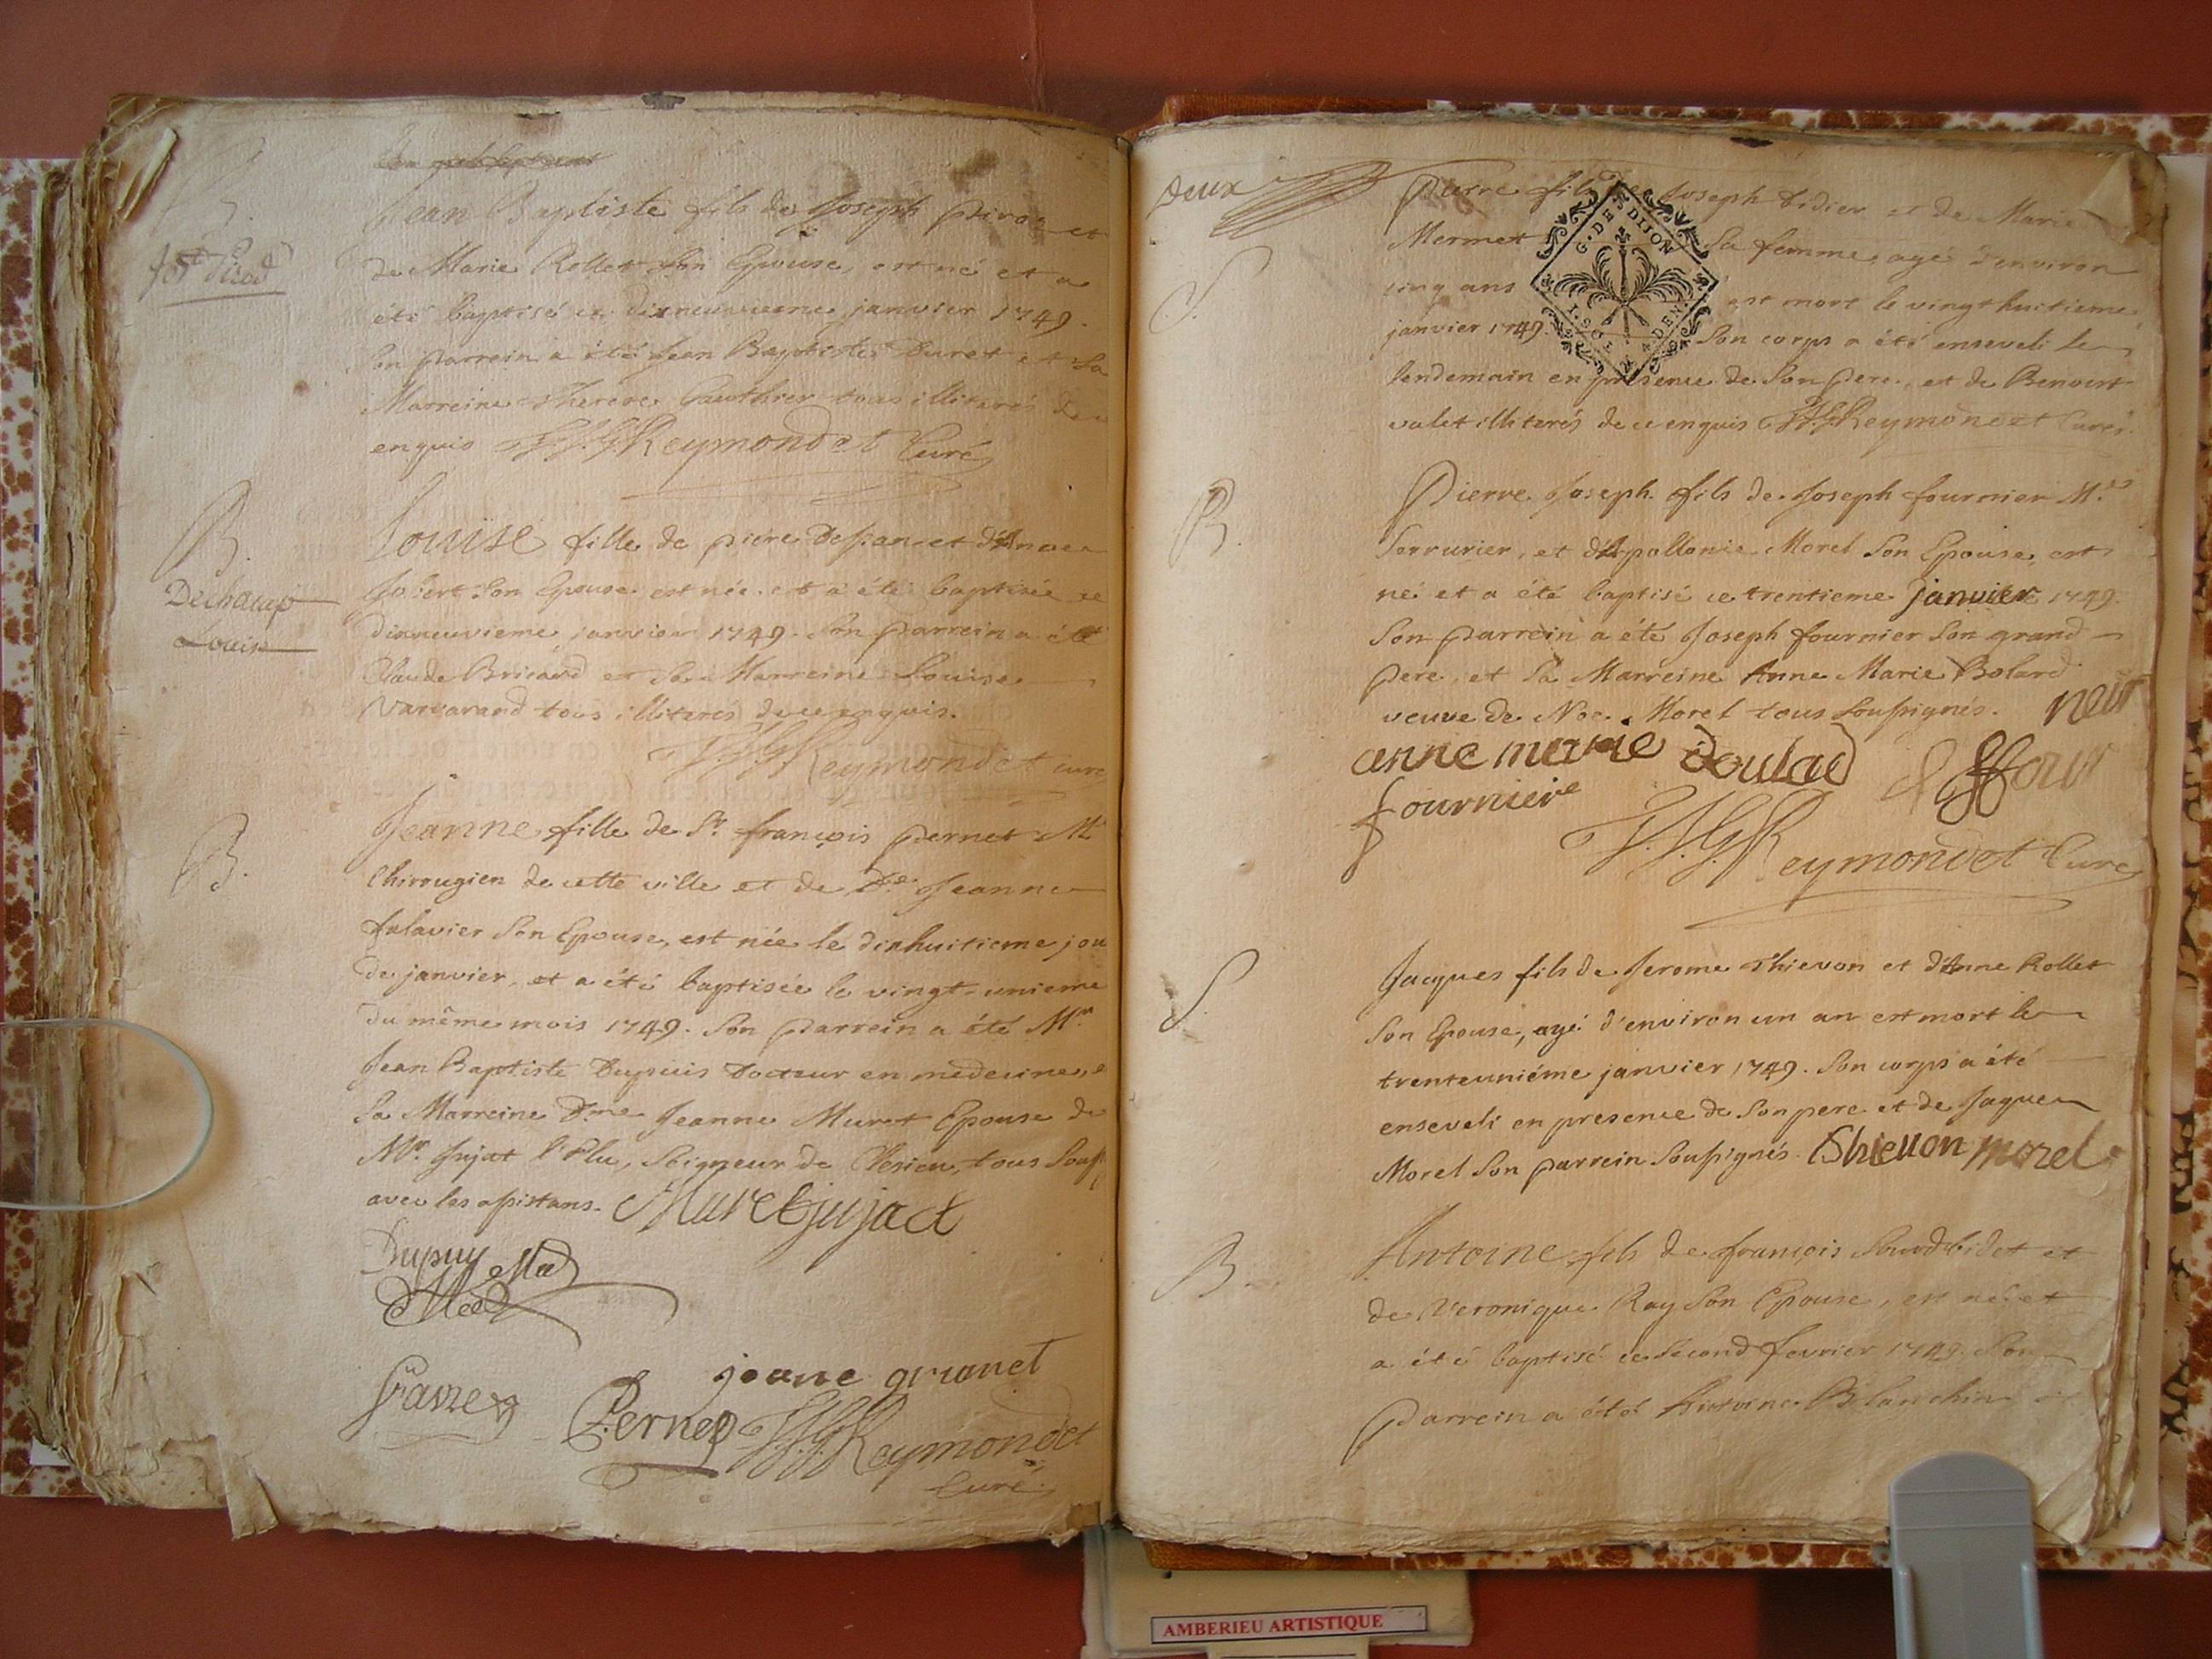 B.
Jean Baptiste fils de Joseph Pirod et
de Marie Rollet son Epouse, est né et a
été baptisé ce dixneuvieme janvier 1749.
Son parrein a été Jean Baptiste Curet et Sa
Marreine Therese Gauthier tous illiterés de ce
enquis Reymondet Curé
B.
Dechamp
Louise
Louise fille de piere et d'Anne
Jobert son Epouse est née et a été baptisée ce
dixneuvieme janvier 1749. Son parrein a été
Claude Bricard et Sa Marreine Louise
Varvarand tous illiterés de ce enquis.
Reymondet curé
B.
Jeanne fille de Sr. françois Pernet Me
Chirougien de cette ville et de De. Jeanne
son Epouse, est née le dixhuitieme jou
de janvier, et a été baptisée le vingt-unieme
du même mois 1749. Son Parrein a été Mr.
Jean Baptiste Dupuis Docteur en medecine, e
Sa Marreine Dme Jeanne Muret Epouse de
Mr. Jujat l'Elu, Seigneur de tous Soup
avec les assistans. Muret jujat
Dupuy Med
Med
Pernet
Reymondet
Curé
deux
S.
Pierre fils de Joseph Didier et de Marie
Mermet Sa femme, agé d'environ
cinq ans est mort le vingt huitieme
janvier 1749. Son corps a été enseveli le
lendemain en presence de Son Pere, et de Benoist
valet illiterés de ce enquis Reymondet Curé.
G. DE DIJON
B.
Pierre Joseph fils de Joseph fournier Me
Serrurier, et d'Apollonie Morel Son Epouse, est
né et a été baptisé ce trentieme janvier 1749.
Son Parrein a été Joseph fournier Son grand
Pere, et Sa Marreine Anne Marie Bolard
veuve de Noe. Morel tous Soussignés.
anne marie boulad
fournier
Reymondet Curé
S.
Jacques fils de Jerome Thievon et d'Anne Rollet
Son Epouse, agé d'environ un an est mort le
trenteuniéme janvier 1749. Son corps a été
enseveli en presence de Son pere et de Jaques
Morel Son parrein Soussignés. Thievon morel
B.
Antoine fils de françois Sourdbidet et
de Veronique Ray Son Epouse, est né et
a été baptisé ce second fevrier 1749. Son
Parrein a été Antoine Blanchin
AMBERIEU ARTISTIQUE